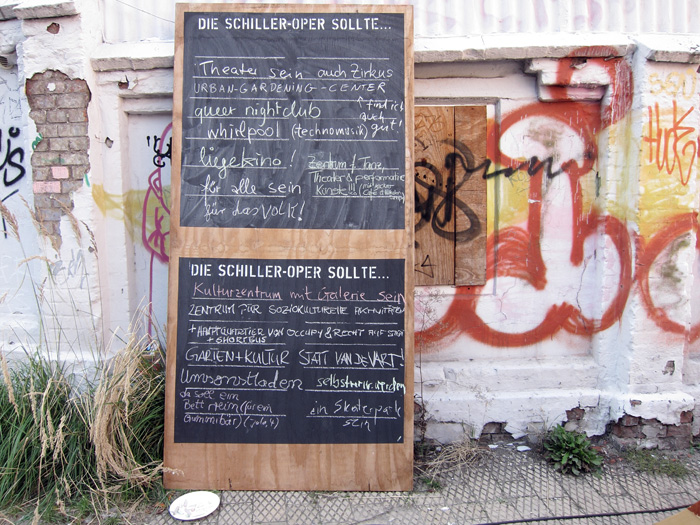 DIE SCHILLER-OPER SOLLTE...
Theater sein auch Zirkus
URBAN-GARDENING-CENTER
queer nightclub
↑ find ich
auch
gut!
whirlpool (technomusik)
liegekino!
Zentrum f. Tanz,
Theater & performative
Künste!!!
für alle sein
für das VOLK!
DIE SCHILLER-OPER SOLLTE...
Kulturzentrum mit Galerie sein
ZENTRUM FÜR SOZIOKULTURELLE AKTIVITÄTEN
+ HAUPTQUARTIER VON OCCUPY & RECHT AUF STADT
GARTEN + KULTUR STATT VAN DE VART!
Umsonstladen selbstverwaltet
da soll ein
Bett rein (für ein
Gummibär)
ein Skaterpark
sein